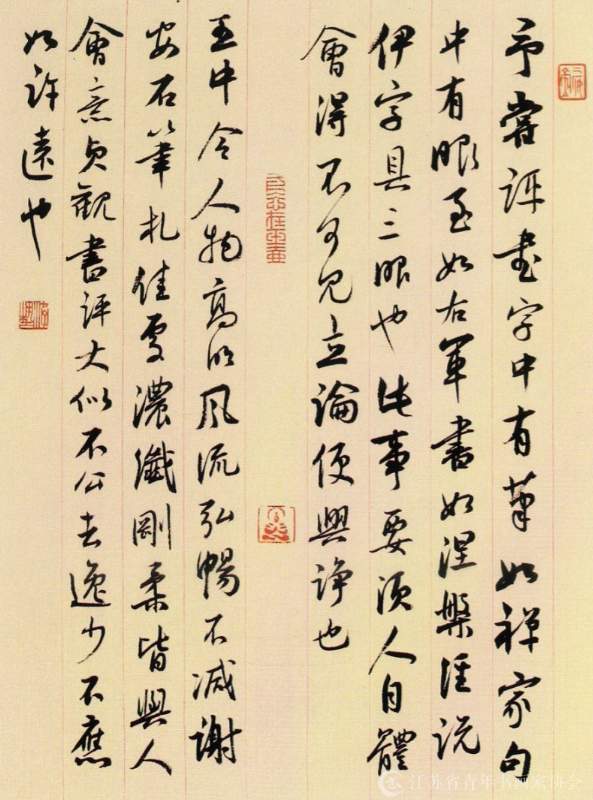 予嘗評書字中有筆如禪家句
中有眼至如右軍書如涅槃經說
伊字具三眼也此事要須人自體
會得不可見立論便興諍也
王中令人物高明風流弘暢不減謝
安石筆札佳處濃纖剛柔皆與人
會意貞觀書評大似不公去逸少不應
如許遠也
江苏省青年书画家协会